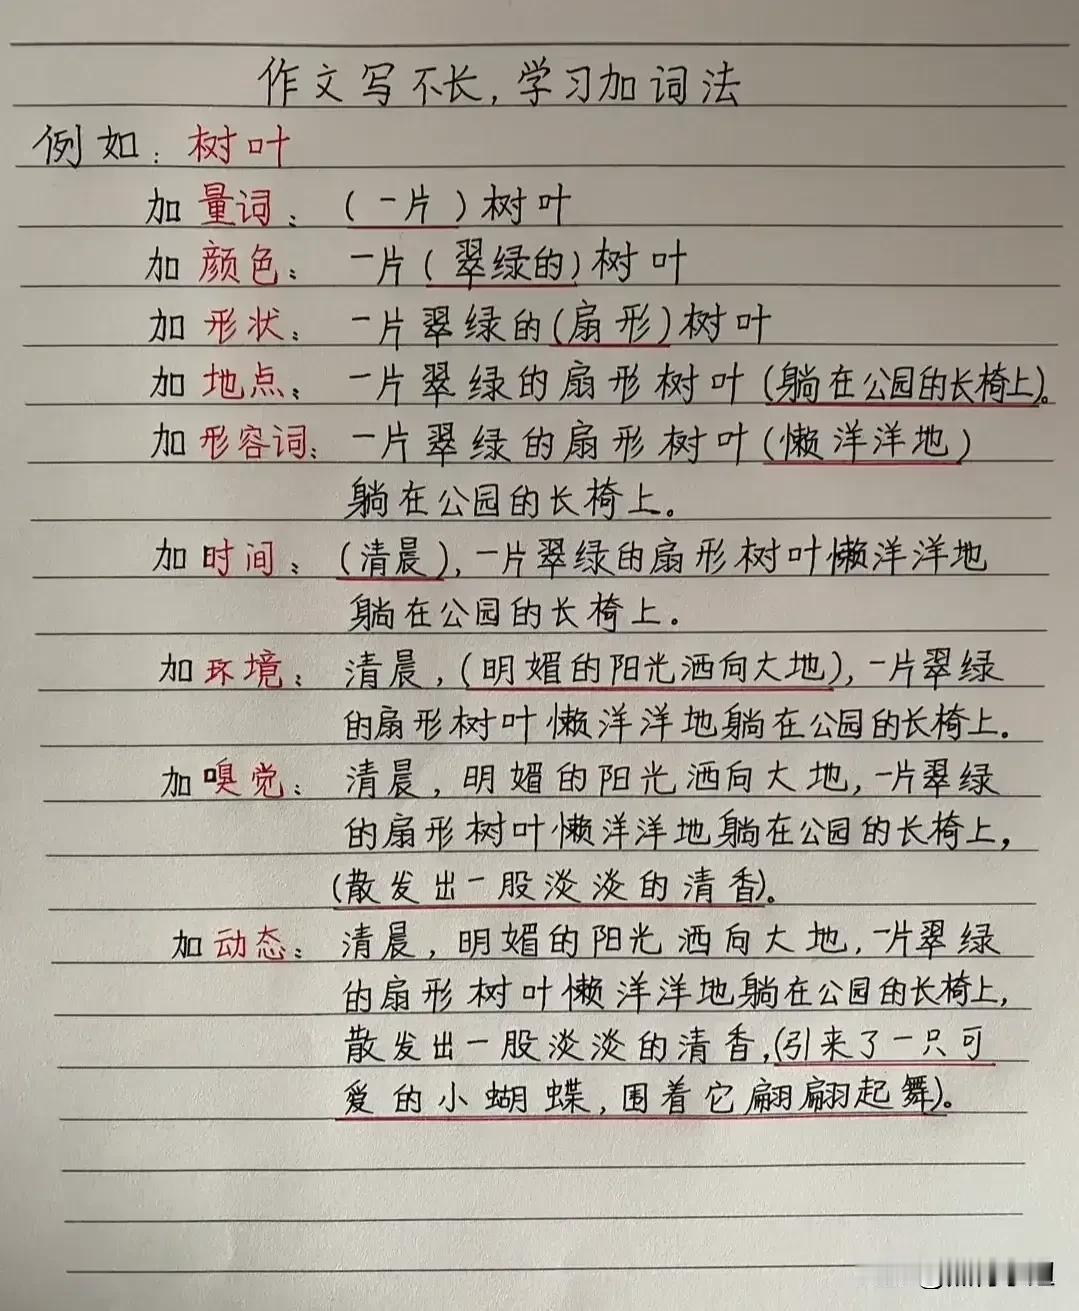 作文写不长,学习加词法
例如:树叶
加量词:(一片)树叶
加颜色:一片(翠绿的)树叶
加形状:一片翠绿的(扇形)树叶
加地点:一片翠绿的扇形树叶(躺在公园的长椅上)。
加形容词:一片翠绿的扇形树叶(懒洋洋地)
躺在公园的长椅上。
加时间:(清晨),一片翠绿的扇形树叶懒洋洋地
躺在公园的长椅上。
加环境:清晨,(明媚的阳光洒向大地),一片翠绿
的扇形树叶懒洋洋地躺在公园的长椅上。
加嗅觉:清晨,明媚的阳光洒向大地,一片翠绿
的扇形树叶懒洋洋地躺在公园的长椅上,
(散发出一股淡淡的清香)。
加动态:清晨,明媚的阳光洒向大地,一片翠绿
的扇形树叶懒洋洋地躺在公园的长椅上,
散发出一股淡淡的清香,(引来了一只可
爱的小蝴蝶,围着它翩翩起舞)。